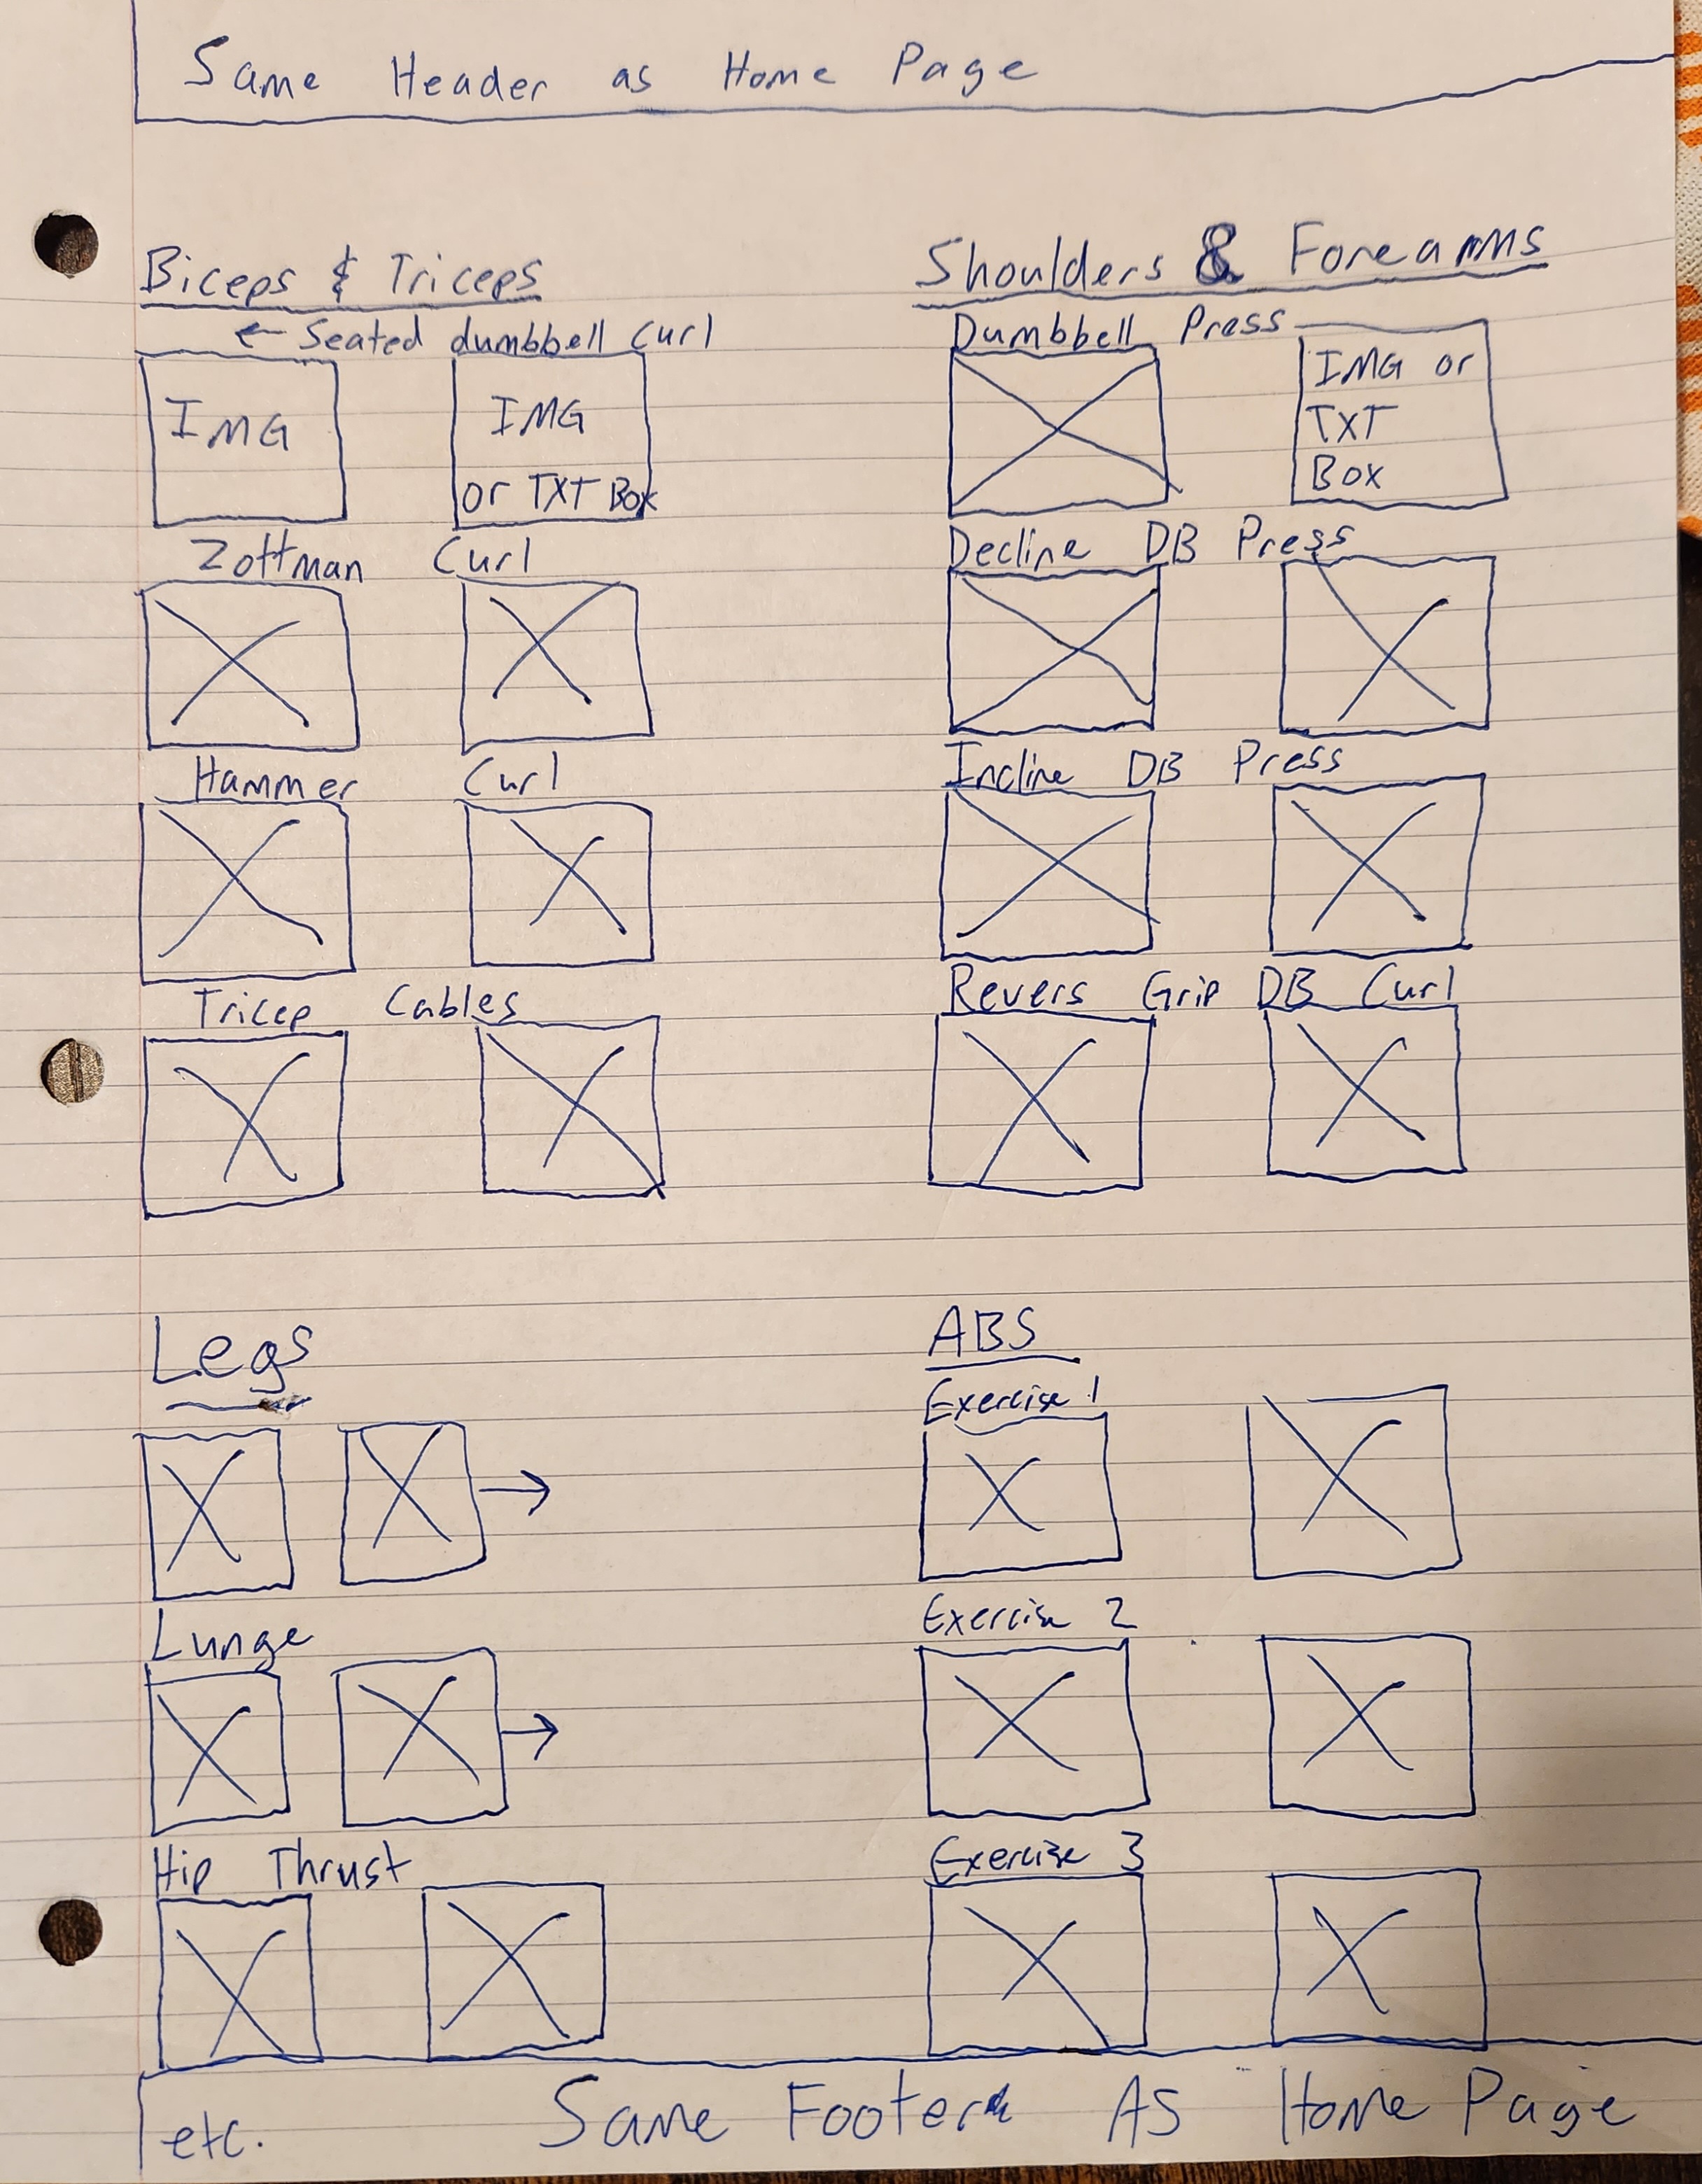 Same Header as Home Page
Biceps & Triceps
← Seated dumbbell Curl
IMG
IMG
or TXT Box
Zottman Curl
Hammer Curl
Tricep Cables
Shoulders & Forearms
Dumbbell Press
IMG or
TXT
BOX
Decline DB Press
Incline DB Press
Revers Grip DB Curl
Legs
Lunge
Hip Thrust
ABS
Exercise 1
Exercise 2
Exercise 3
etc.
Same Footer As Home Page